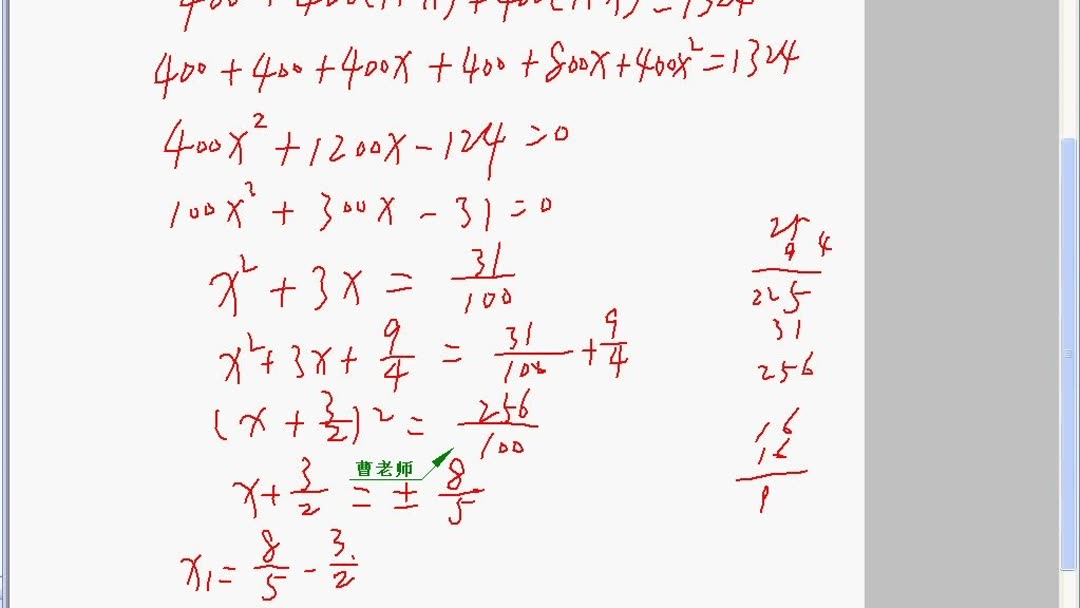 400 + 400(1+x) + 400(1+x)² = 1324
400 + 400 + 400x + 400 + 800x + 400x² = 1324
400x² + 1200x - 124 = 0
100x² + 300x - 31 = 0
x² + 3x = 31/100
x² + 3x + 9/4 = 31/100 + 9/4
(x + 3/2)² = 256/100
曹老师
x + 3/2 = ± 8/5
x₁ = 8/5 - 3/2
25
9 4
225
31
256
16
16